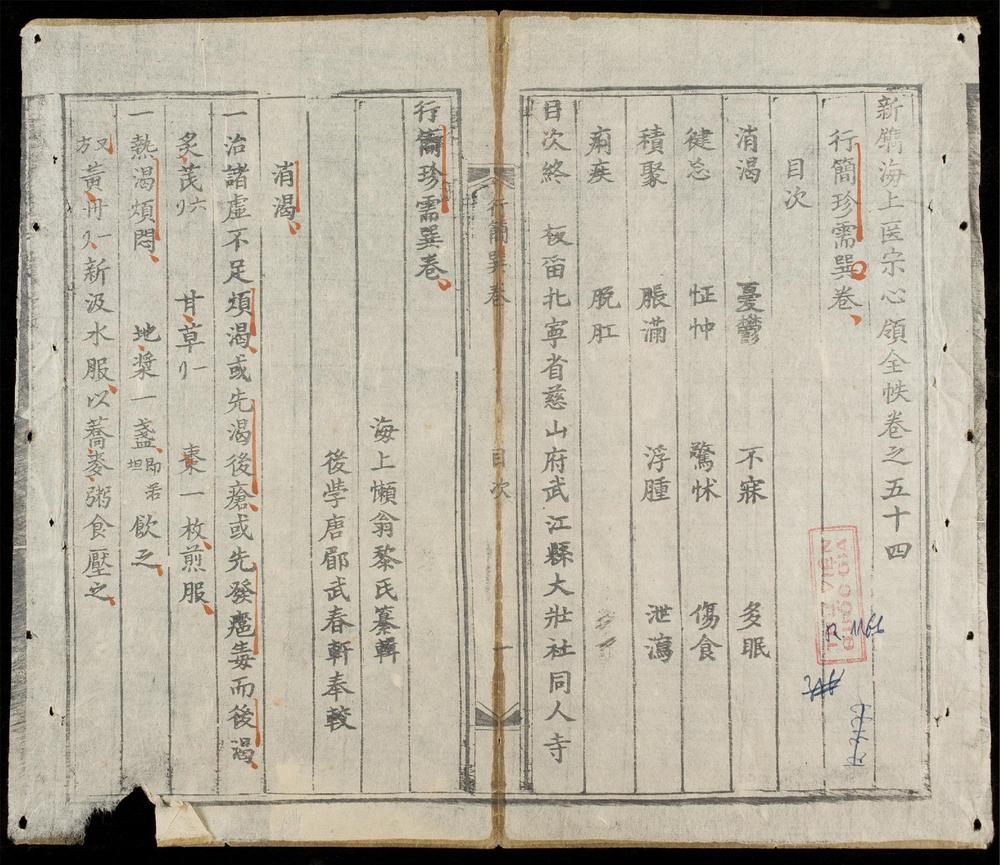 新鐫海上医宗心領全帙卷之五十四
行簡珍需巽卷
目次
消渴 憂鬱 不寐 多眠
健忘 怔忡 驚怵 傷食
積聚 脹滿 浮腫 泄瀉
痢疾 脫肛
目次終 板畱北寧省慈山府武江縣大壯社同人寺
行簡巽卷 目次 一
行簡珍需巽卷
海上懶翁黎氏纂輯
後學唐郿武春軒奉較
消渴
一治諸虛不足煩渴或先渴後瘡或先發瘡毒而後渴
炙芪六 甘草一 棗一枚煎服
一熱渴煩悶 地漿一盞 飲之
又方黃丹一 新汲水服以蕎麥粥食壓之
THƯ VIỆN
QUỐC GIA
R. 1166